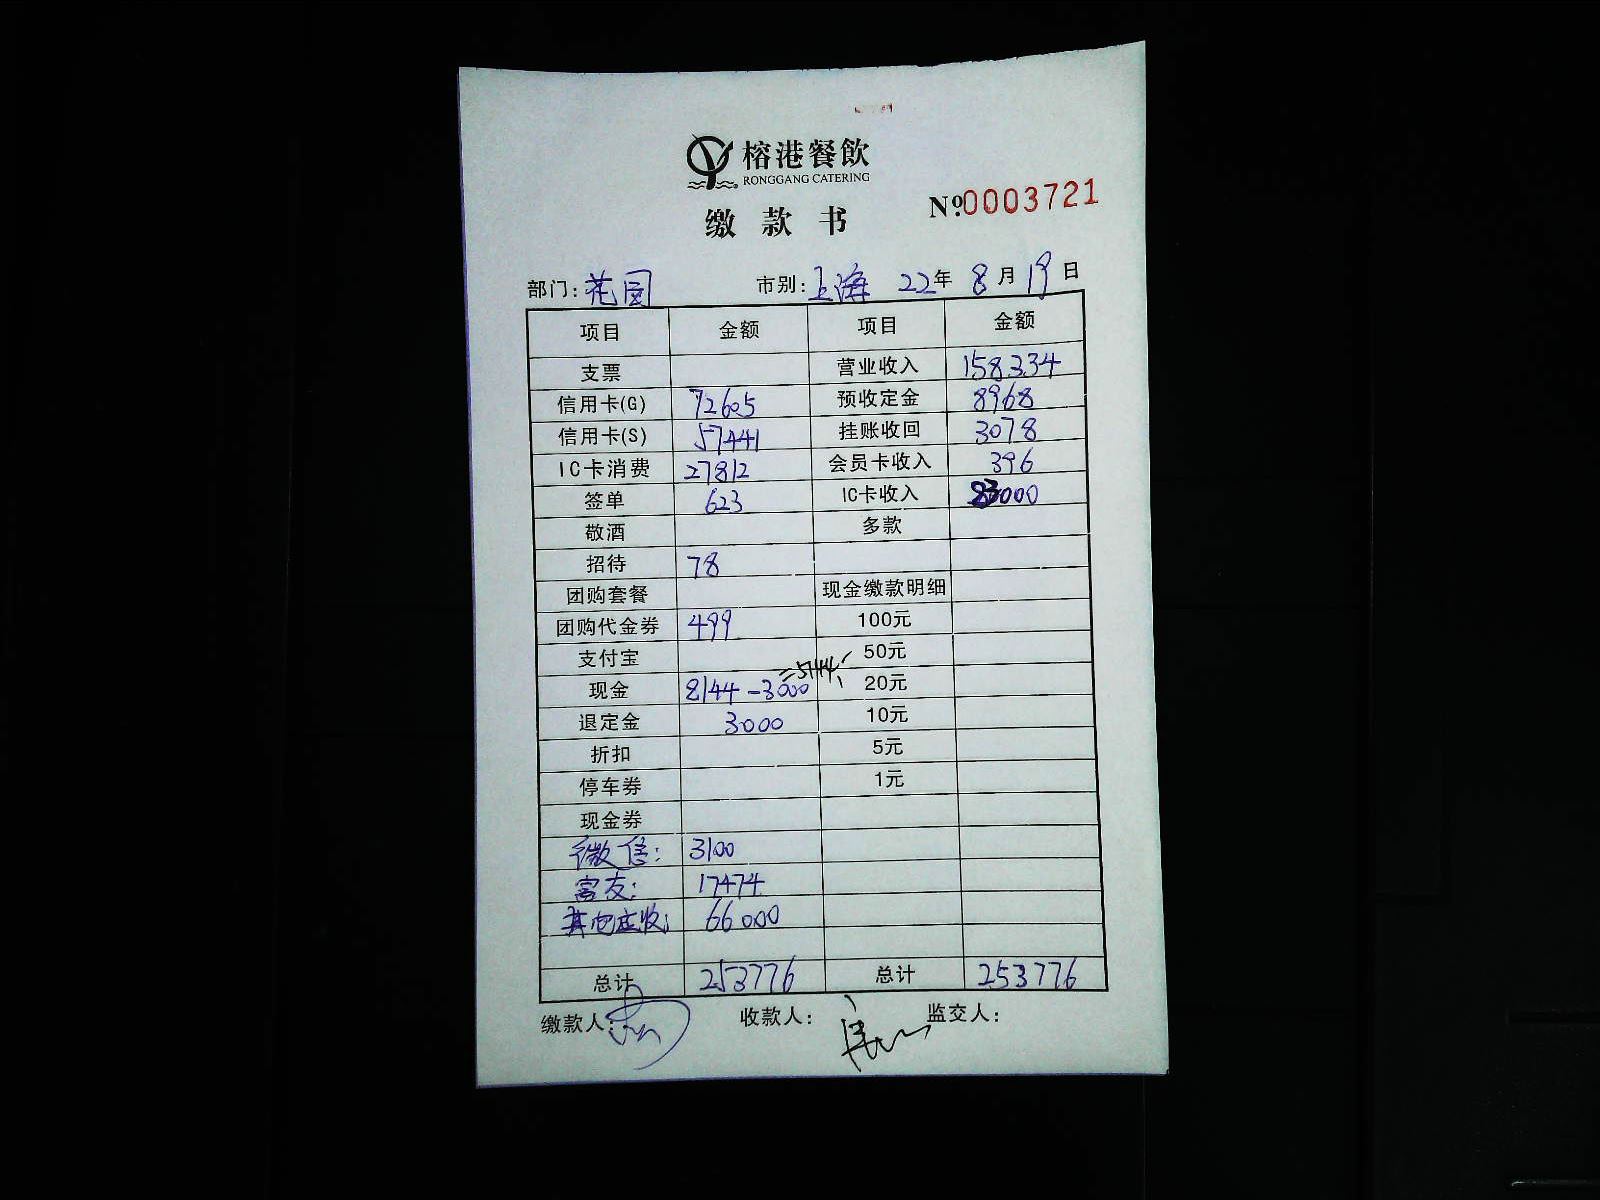 榕港餐飲
RONGGANG CATERING
缴款书 Nº0003721
部门:花园 市别:上海 22年 8月 19日
项目 金额 项目 金额
支票 营业收入 158334
信用卡(G) 72605 预收定金 8968
信用卡(S) 57441 挂账收回 3078
IC卡消费 27812 会员卡收入 396
签单 623 IC卡收入 83000
敬酒 多款
招待 78
团购套餐 现金缴款明细
团购代金券 499 100元
支付宝 50元
现金 8144-3000=5144 20元
退定金 3000 10元
折扣 5元
停车券 1元
现金券
微信: 3100
富友: 17474
其它应收: 66000
总计 253776 总计 253776
缴款人: 收款人: 监交人: